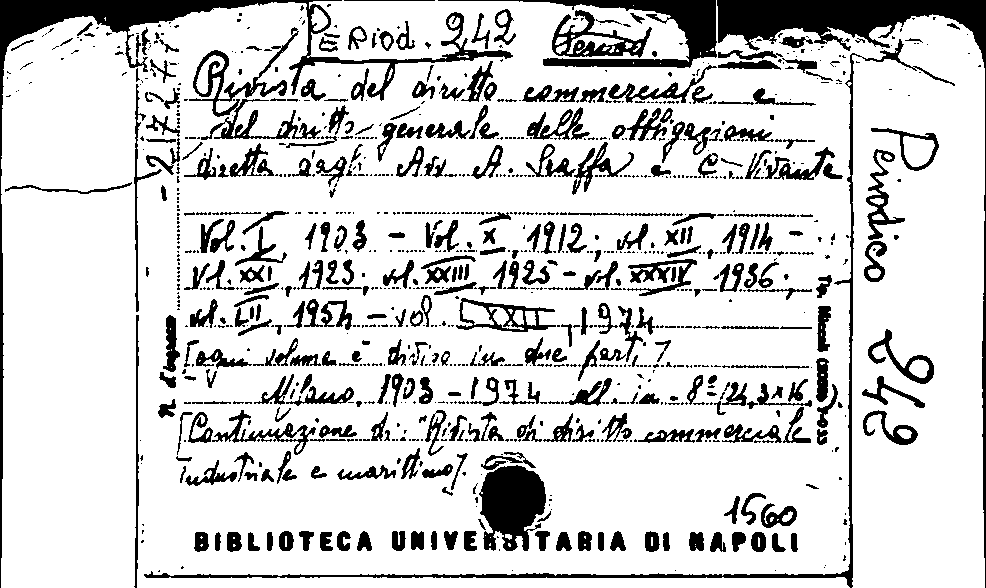 PERIOD. 242 Period.
Rivista del diritto commerciale e
del diritto generale delle obbligazioni,
diretta dagli Avv A. Sraffa e C. Vivante
Vol. I, 1903 - Vol. X, 1912; vol. XII, 1914 -
vol. XXI, 1923; vol. XXIII, 1925 - vol. XXXIV, 1936;
vol. LII, 1954 - vol. LXXII, 1974
[ogni volume è diviso in due parti].
Milano, 1903 - 1974 voll. in - 8º (24,3 x 16, ).
[Continuazione di: "Rivista di diritto commerciale
industriale e marittimo].
1560
BIBLIOTECA UNIVERSITARIA DI NAPOLI
N. d'ingresso
- 217277
Periodico 242